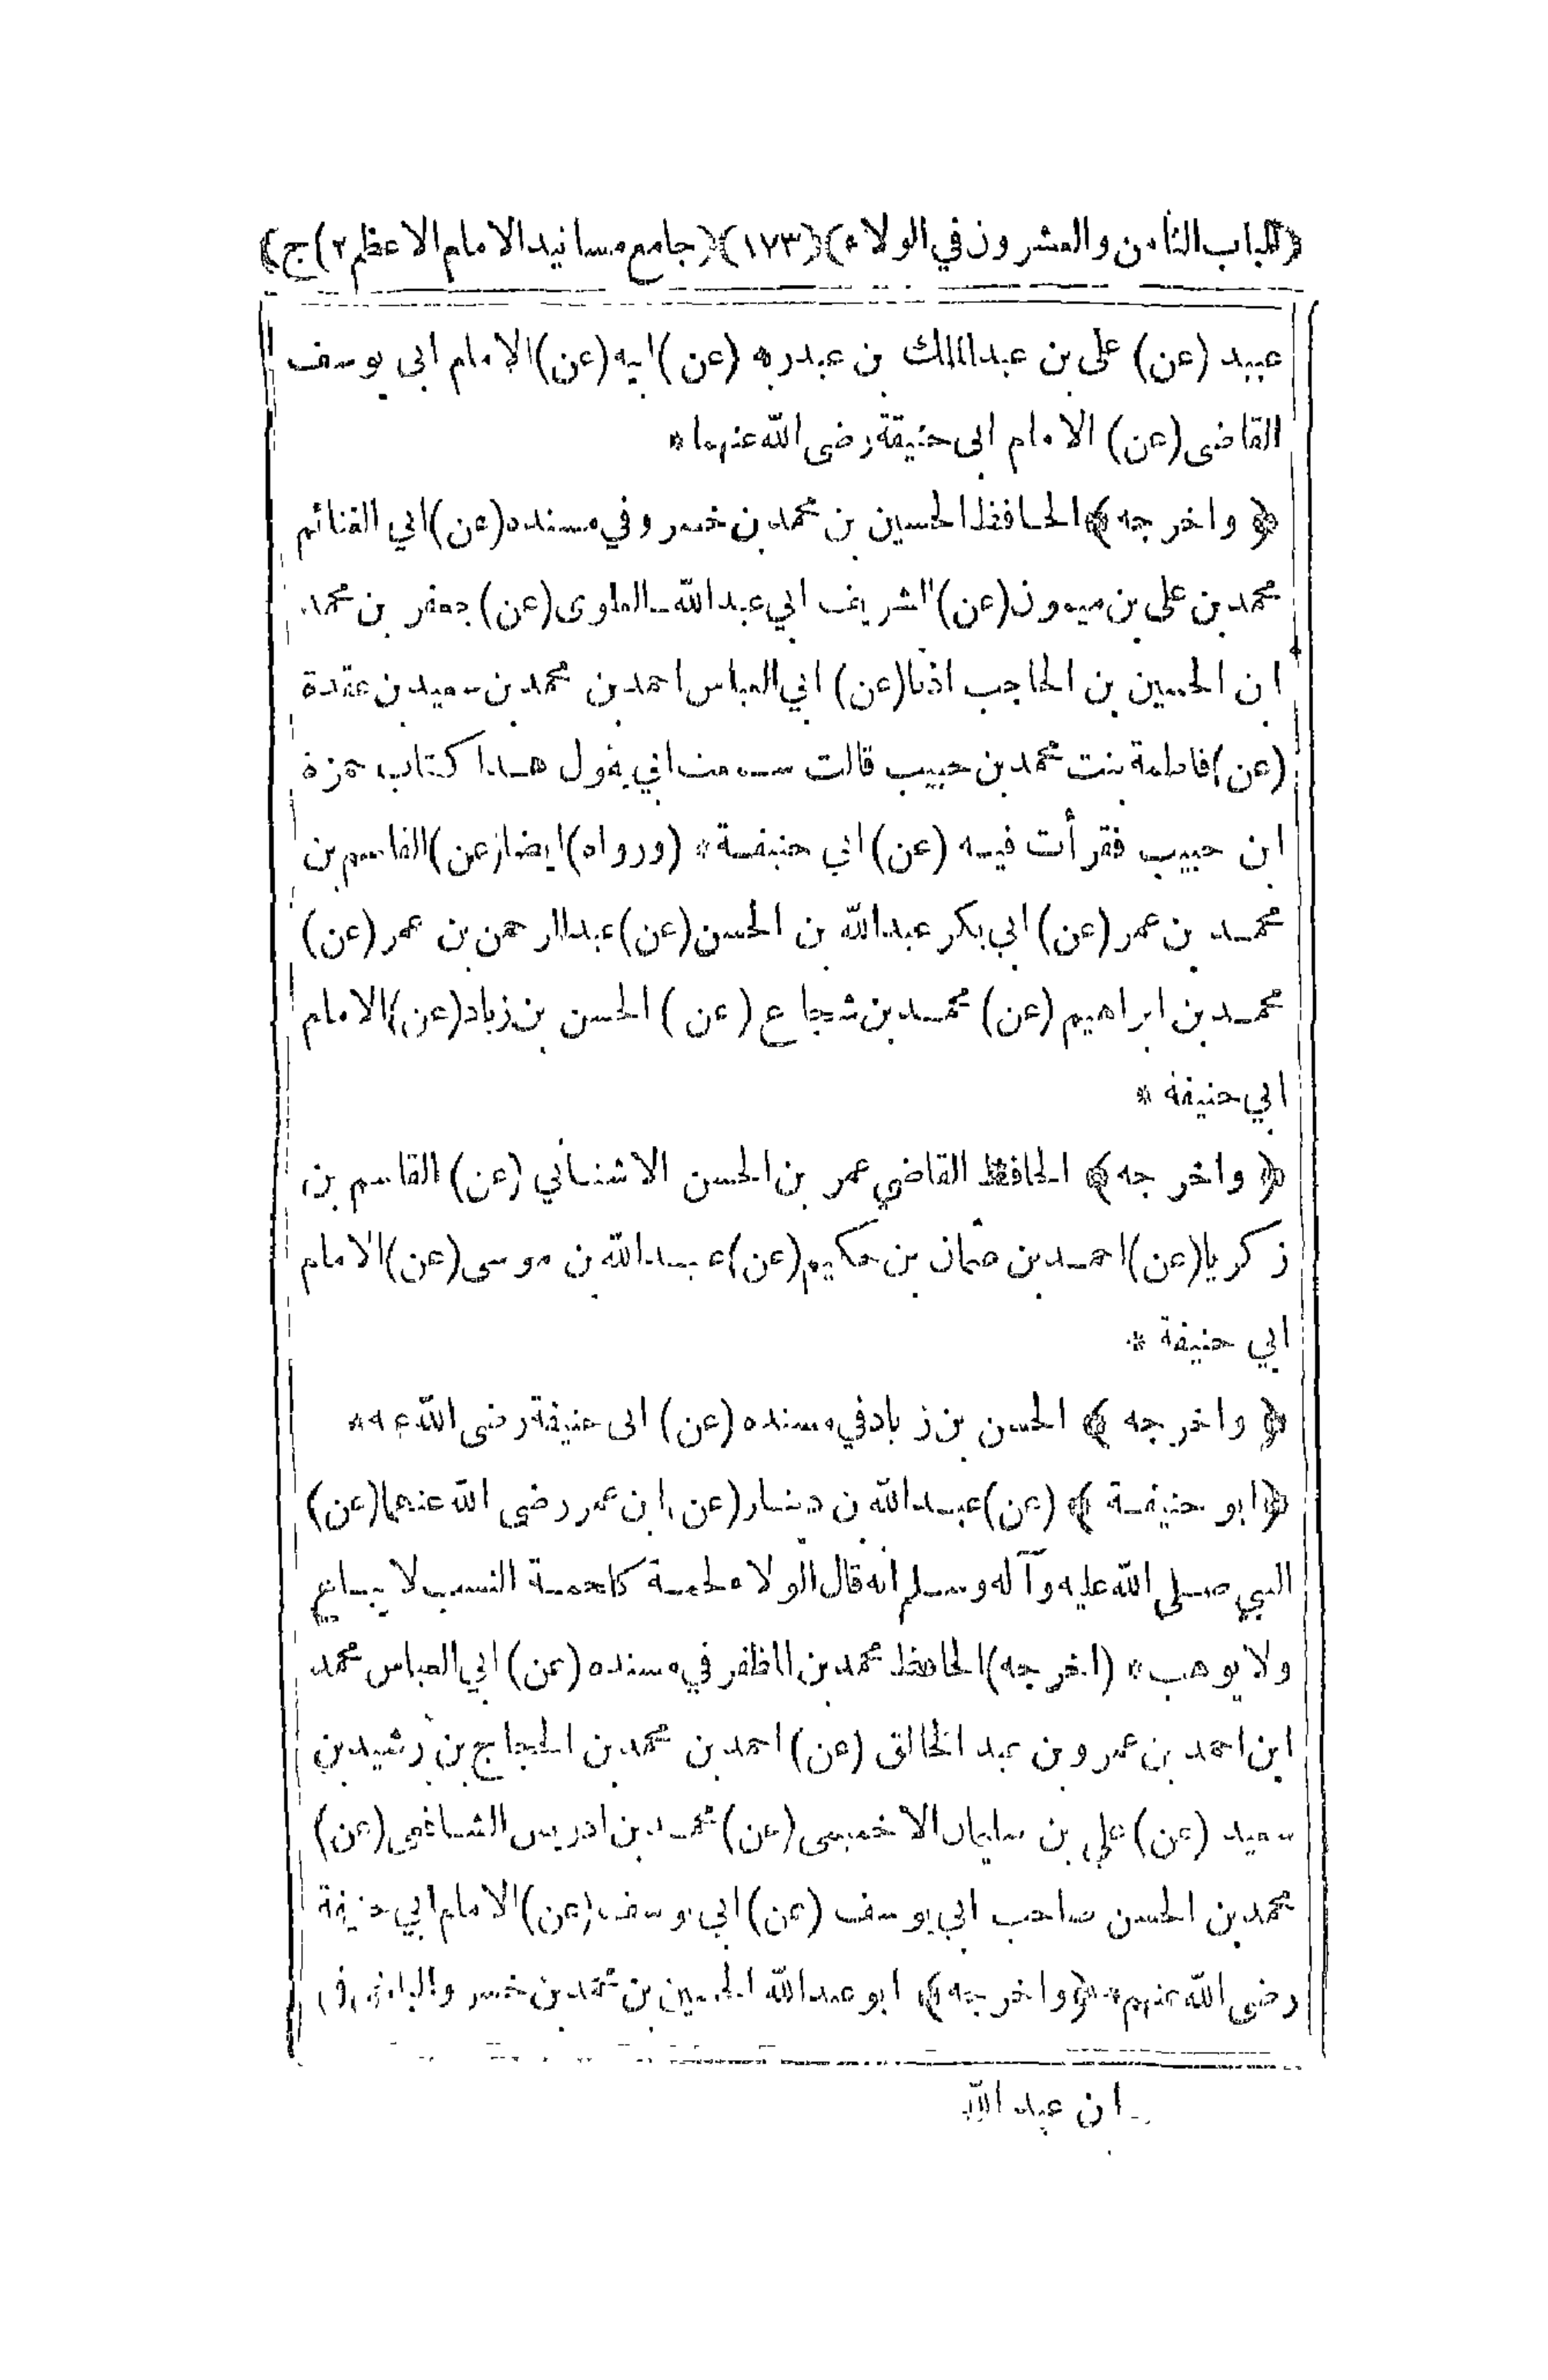 ﴿الباب الثامن والعشرون في الولاء﴾ (١٧٣) (جامع مسانيد الامام الاعظم ٢) ج﴾
عبيد (عن) على بن عبد الملك بن عبدربه (عن) ابيه (عن) الامام ابى يوسف
القاضى (عن) الامام ابى حنيفة رضى الله عنهما *
﴿واخرجه﴾ الحافظ الحسين بن محمد بن خسرو في مسنده (عن) ابي الغنائم
محمد بن على بن ميمون (عن) الشريف ابي عبد الله العلوى (عن) جعفر بن محمد
ابن الحسين بن الحاجب اذنا (عن) ابي العباس احمد بن محمد بن سعيد بن عقدة
(عن) فاطمة بنت محمد بن حبيب قالت سمعت ابي يقول هذا كتاب حمزة
ابن حبيب فقرأت فيه (عن) ابي حنيفة * (ورواه) ايضا (عن) القاسم بن
محمد بن عمر (عن) ابي بكر عبد الله بن الحسن (عن) عبد الرحمن بن عمر (عن)
محمد بن ابراهيم (عن) محمد بن شجاع (عن) الحسن بن زياد (عن) الامام
ابي حنيفة *
﴿واخرجه﴾ الحافظ القاضي عمر بن الحسن الاشناني (عن) القاسم بن
زكريا (عن) احمد بن عثمان بن حكيم (عن) عبيد الله بن موسى (عن) الامام
ابي حنيفة *
﴿واخرجه﴾ الحسن بن زياد في مسنده (عن) ابى حنيفة رضى الله عنه *
﴿ابو حنيفة﴾ (عن) عبد الله بن دينار (عن) ابن عمر رضى الله عنهما (عن)
النبي صلى الله عليه وآله وسلم انه قال الولاء لحمة كلحمة النسب لا يباع
ولا يوهب * (اخرجه) الحافظ محمد بن المظفر في مسنده (عن) ابي العباس محمد
ابن احمد بن عمرو بن عبد الخالق (عن) احمد بن محمد بن الحجاج بن رشيد بن
سعيد (عن) علي بن سليمان الاخميمى (عن) محمد بن ادريس الشافعى (عن)
محمد بن الحسن صاحب ابي يوسف (عن) ابي يوسف (عن) الامام ابي حنيفة
رضى الله عنهم * ﴿واخرجه﴾ ابو عبد الله الحسين بن محمد بن خسرو البلخى في
ابن عبد الله